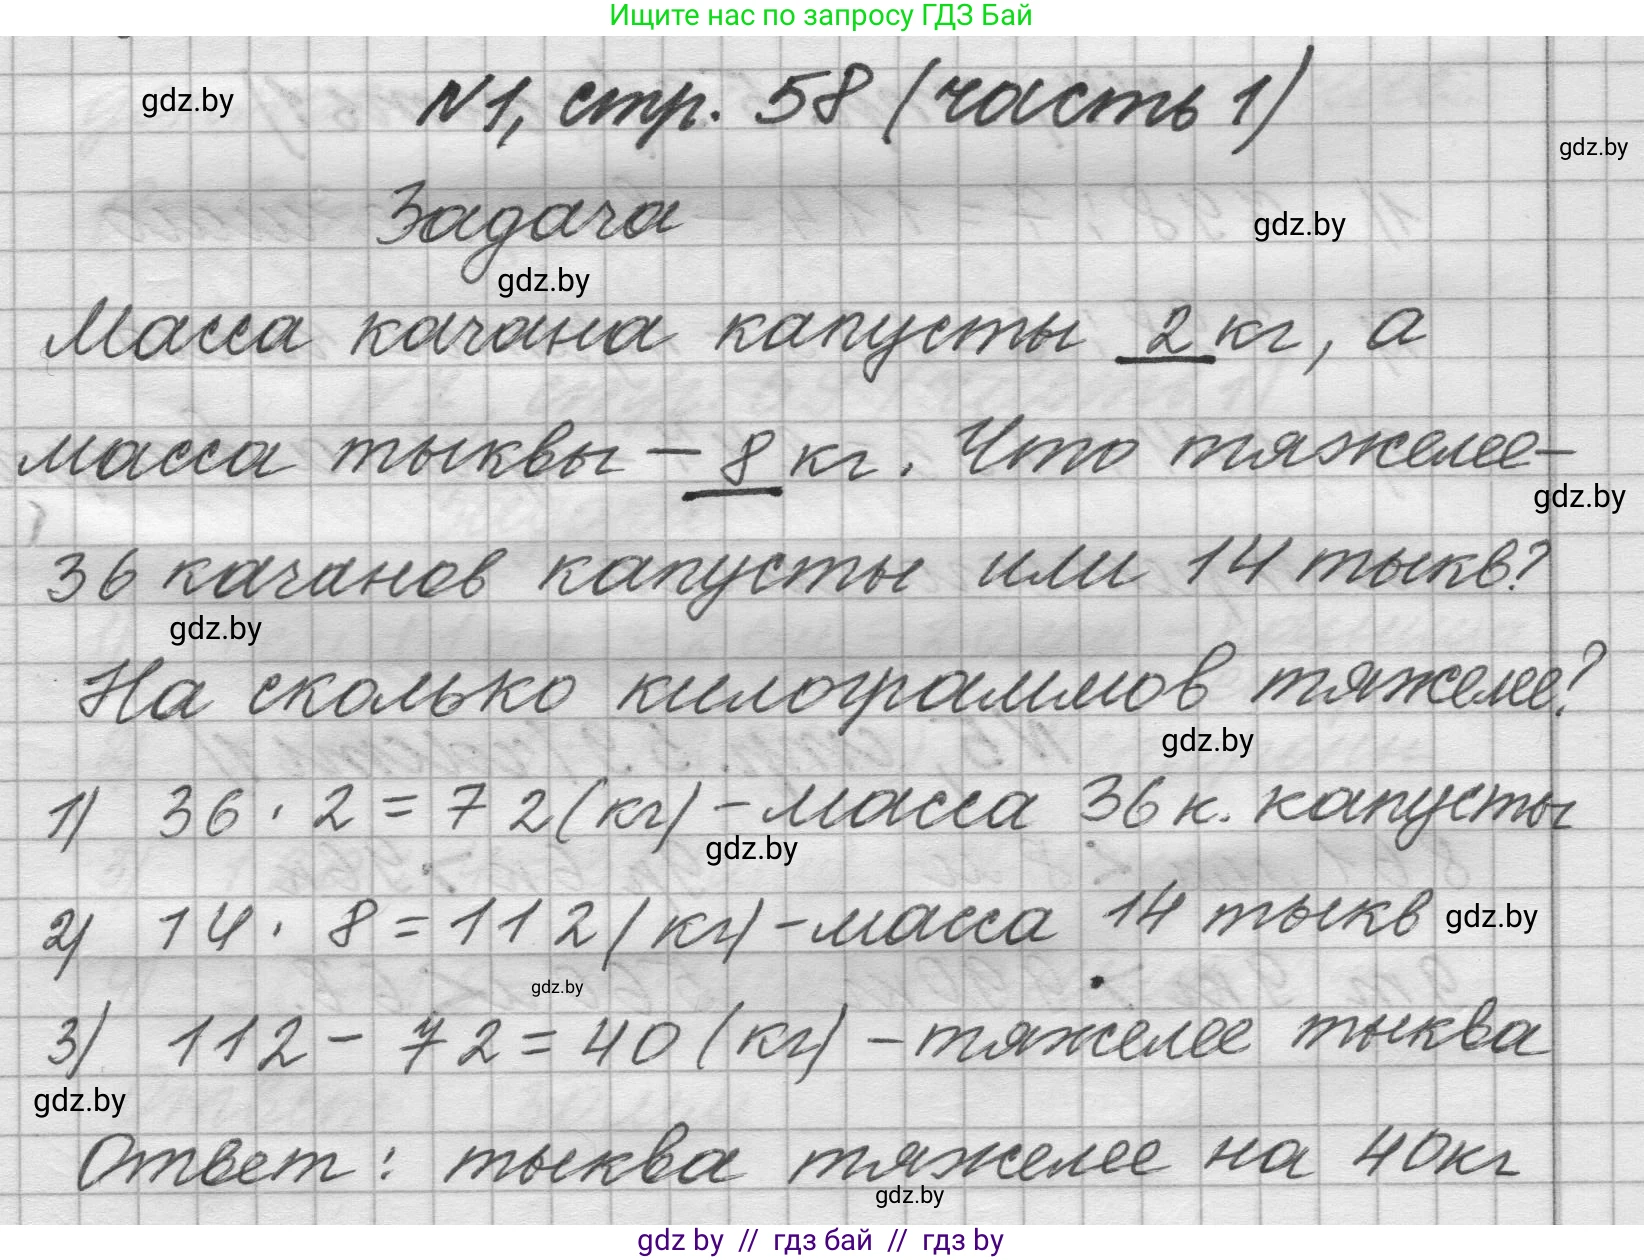 Ищите нас по запросу ГДЗ Бай
gdz.by
№1, стр. 58 (часть 1)
gdz.by
Задача
gdz.by
gdz.by
Масса качана капусты 2 кг, а
масса тыквы – 8 кг. Что тяжелее –
gdz.by
36 качанов капусты или 14 тыкв?
gdz.by
На сколько килограммов тяжелее?
gdz.by
1) 36 · 2 = 72 (кг) – масса 36 к. капусты
gdz.by
2) 14 · 8 = 112 (кг) – масса 14 тыкв
gdz.by
gdz.by
3) 112 – 72 = 40 (кг) – тяжелее тыква
gdz.by
Ответ: тыква тяжелее на 40кг
gdz.by
gdz by // гдз бай // гдз by